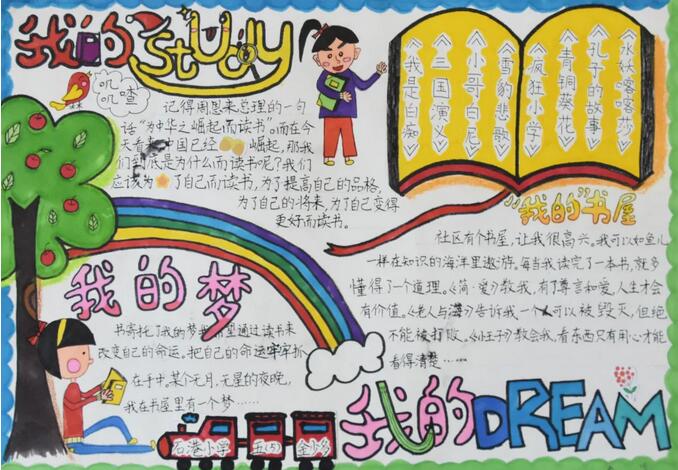 我的Study
叽
叽喳
记得周恩来总理的一句
话“为中华之崛起而读书”，而在今
天看来中国已经崛起，那我
们到底是为什么而读书呢？我们
应该为了自己而读书，为了提高自己的品格，
为了自己的将来，为了自己变得
更好而读书。
《水妖喀喀莎》
《孔子的故事》
《青铜葵花》
《疯狂小学》
《雪豹悲歌》
《小哥白尼》
《三国演义》
《我是白痴》
“我的”书屋
社区有个书屋，让我很高兴。我可以如鱼儿
一样在知识的海洋里遨游。每当我读完了一本书，就多
懂得了一个道理。《简·爱》教我，有了尊言和爱，人生才会
有价值。《老人与海》告诉我一个人可以被毁灭，但绝
不能被打败。《小王子》教会我，看东西只有用心才能
看得清楚……
我的梦
书寄托了我的梦我希望通过读书来
改变自己的命运，把自己的命运牢牢抓
在手中，某个无月，无星的夜晚，
我在书屋里有一个梦……
石港小学 五(4)
我的DREAM